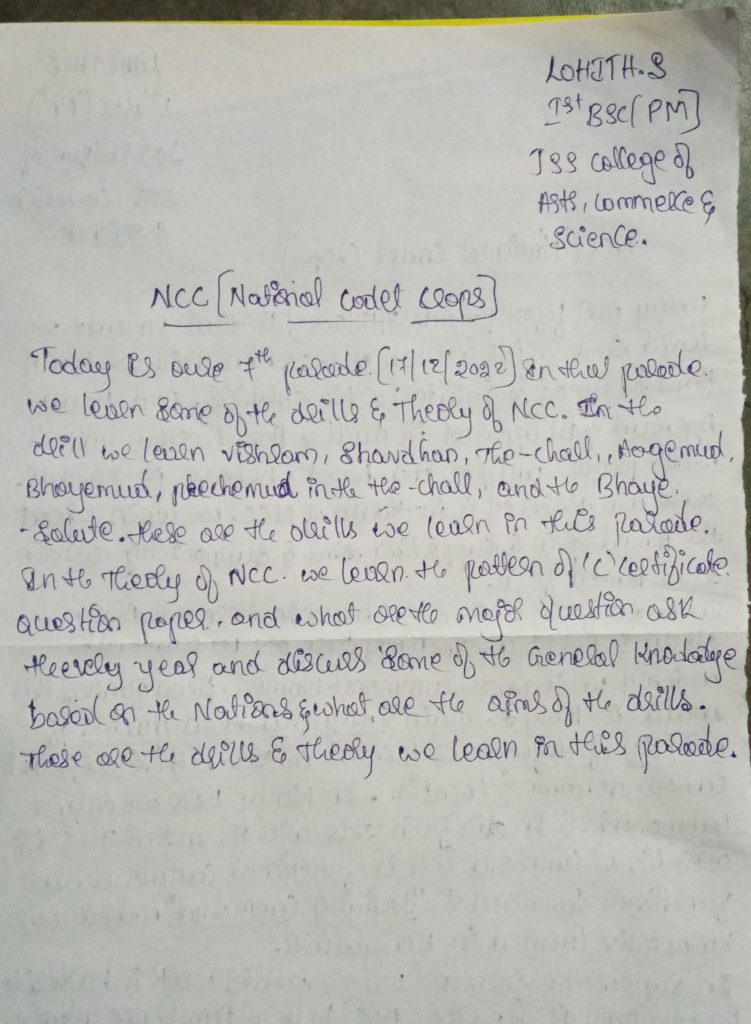 LOHITH.S
Ist BSC[PM]
JSS College of
Arts, Commerce &
Science.
NCC [National Codet Crops]
Today is oure 7th parade. [17/12/2022] In that parade.
we learn some of the drills & Theory of NCC. In the
drill we learn vishram, Shavdhan, The-chall, Aagemud,
Bhayemud, peechemud in the the-chall, and the Bhaye.
-Salute. these are the drills we learn in this Parade.
In the Theory of NCC. we learn. the pattern of 'C' certificate
question paper. and what are the major question ask
the every year and discuss some of the General Knodadge
based on the Nations & what are the aims of the drills.
These are the drills & Theory we learn in this parade.